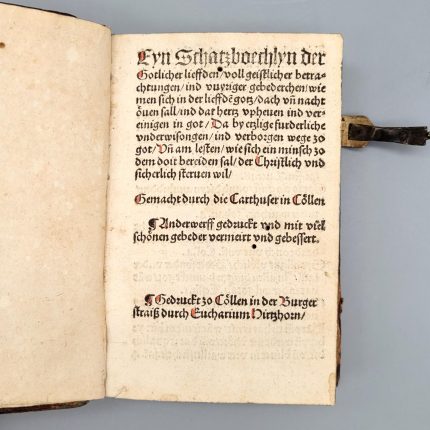 Eyn Schatzboechlyn der
Gotlicher lieffden/ voll geistlicher betra⸗
chtungen/ ind vuyriger gebederchen/ wie
men sich in der lieffdē gotz/ dach vñ nacht
öuen sall/ ind dat hertz vpheuen ind ver⸗
einigen in got/ Da by etzlige furderliche
vnderwisongen/ ind verborgen wege zo
got/ Vñ am lesten/ wie sich ein minsch zo
dem doit bereiden sal/ der Christlich vnd
sicherlich steruen wil/
Gemacht durch die Carthuser in Cöllen
¶ Anderwerff gedruckt vnd mit viel
schönen gebeder vermeirt vnd gebessert.
¶ Gedruckt zo Cöllen in der Burger
straiß durch Eucharium Hirtzhorn/